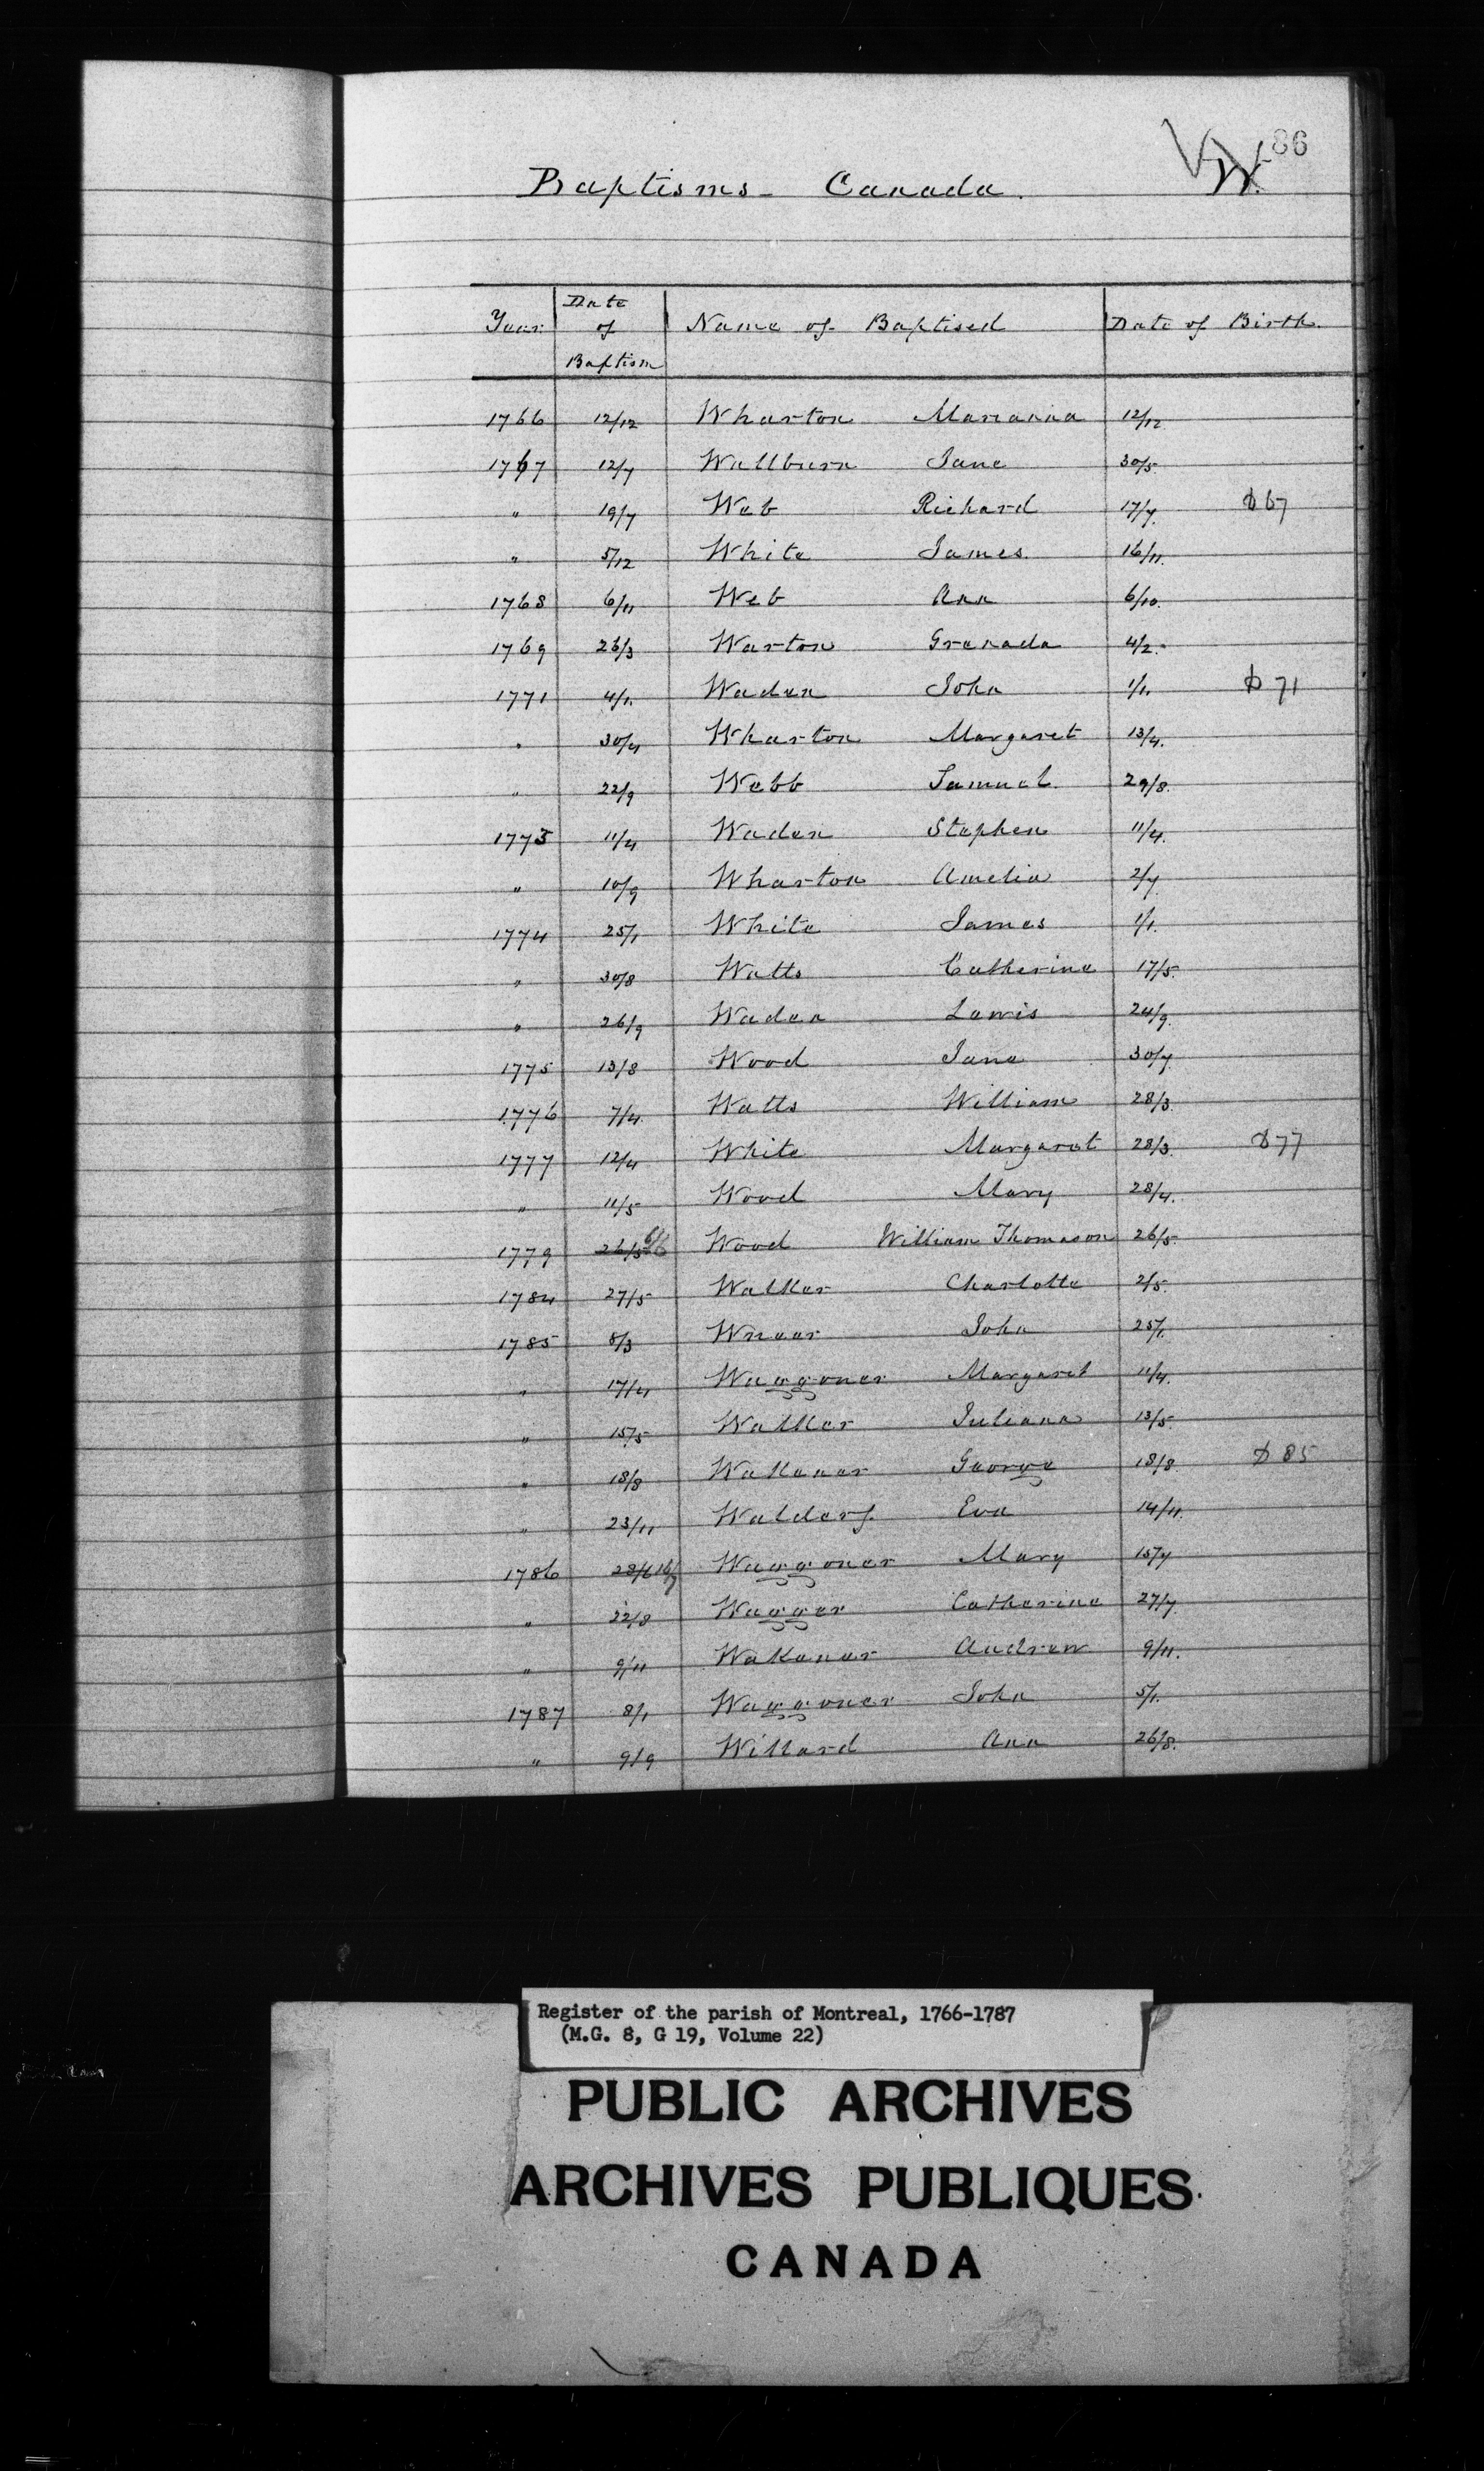 86
W.
Baptisms - Canada.
Year Date of Baptism Name of Baptised Date of Birth.
1766 12/12 Wharton Marianna 12/12.
1767 12/7 Wallburn Jane 30/5.
" 19/7 Web Richard 17/7. D 67
" 5/12 White James. 16/11.
1768 6/11 Web Ann 6/10.
1769 26/3 Warton Grenada 4/2.
1771 4/1. Waden John 1/1. D 71
" 30/4 Wharton Margaret 13/4.
" 22/9 Webb Samuel. 29/8.
1773 11/4 Waden Stephen 11/4.
" 10/9 Wharton Amelia 2/7.
1774 25/1 White James 1/1.
" 30/8 Watts Catherine 17/5.
" 26/9 Waden Lewis 24/9.
1775 13/8 Wood Jane 30/7.
1776 7/4. Watts William 28/3.
1777 12/4 White Margaret 28/3. D 77
" 11/5 Wood Mary 28/4.
1779 26/5 6/6 Wood William Thomason 26/5.
1784 27/5 Walker Charlotte 2/5.
1785 8/3 John 25/1.
" 17/4 Waggoner Margaret 11/4.
" 15/5 Walker Juliana 13/5.
" 18/8 Wakenar George 18/8. D 85
" 23/11 Walderf Eva 14/11.
1786 28/6 16/7 Waggoner Mary 15/7
" 22/8 Wagger Catherine 27/7.
" 9/11 Wakenar Andrew 9/11.
1787 8/1 Waggoner John 5/1.
" 9/9 Willard Ann 26/8.
Register of the parish of Montreal, 1766-1787
(M.G. 8, G 19, Volume 22)
PUBLIC ARCHIVES
ARCHIVES PUBLIQUES
CANADA